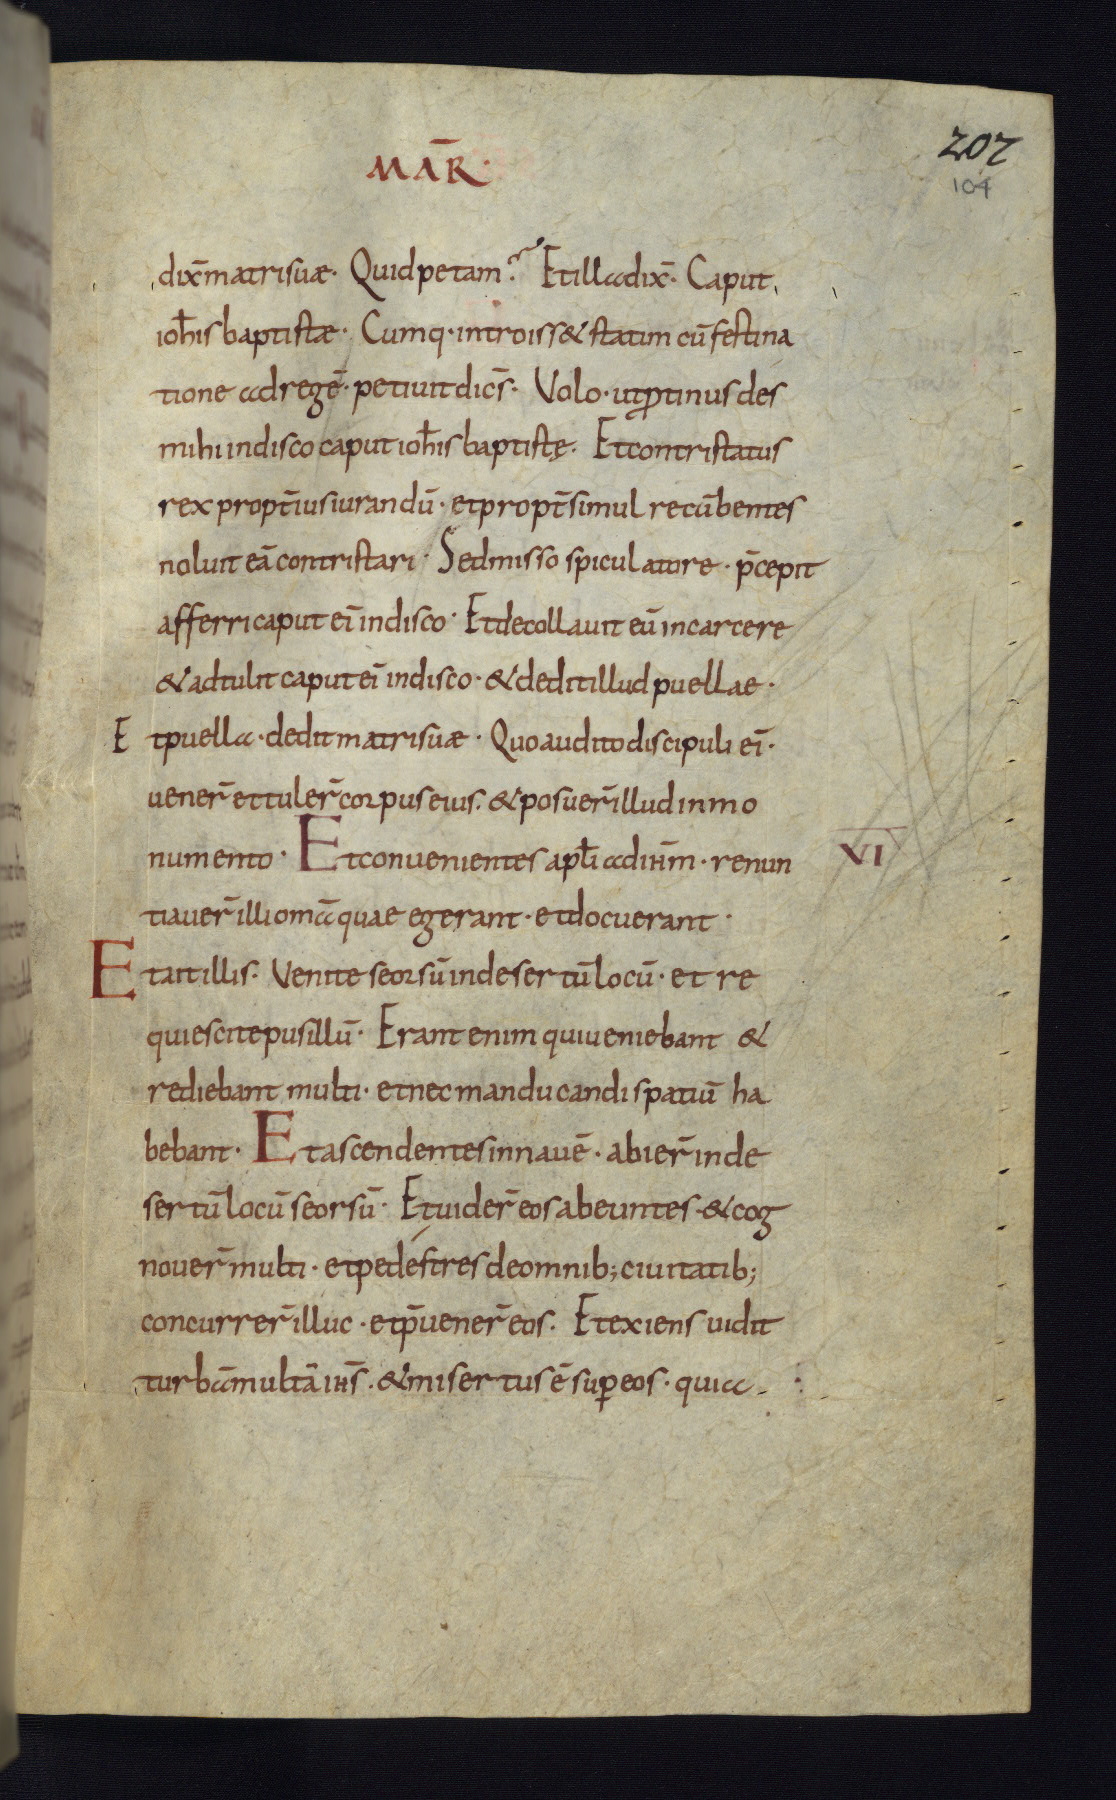 MAR̄·
202
104
dix̄ matri suæ· Quid petam? Et illa dix̄· Caput
ioh̄is baptistæ· Cumq· introiss& statim cū festina
tione ad regē· petiuit dic̄s· Volo· ut ꝓtinus des
mihi in disco caput ioh̄is baptistę· Et contristatus
rex propt̄ iusiurandū· et propt̄ simul recūbentes
noluit eā contristari· Sed misso spiculatore· p̄cepit
afferri caput ei᷒ in disco· Et decollauit eū in carcere
& adtulit caput ei᷒ in disco· & dedit illud puellae·
Et puella· dedit matri suæ· Quo audito discipuli ei᷒·
uener̄ et tuler̄ corpus eius· & posuer̄ illud in mo
numento· Et conuenientes apl̄i ad ih̄m· renun
VI
tiauer̄ illi om̄a quae egerant· et docuerant·
Et ait illis· Venite seorsū in desertū locū· et re
quiescite pusillū· Erant enim qui ueniebant &
rediebant multi· et nec manducandi spatiū ha
bebant· Et ascendentes in nauē· abier̄ in de
sertū locū seorsū· Et uider̄ eos abeuntes & cog
nouer̄ multi· et pedestres de omnib; ciuitatib;
concurrer̄ illuc· et p̄uener̄ eos· Et exiens uidit
turbā multā ih̄s· & misertus ē suꝑ eos· quia